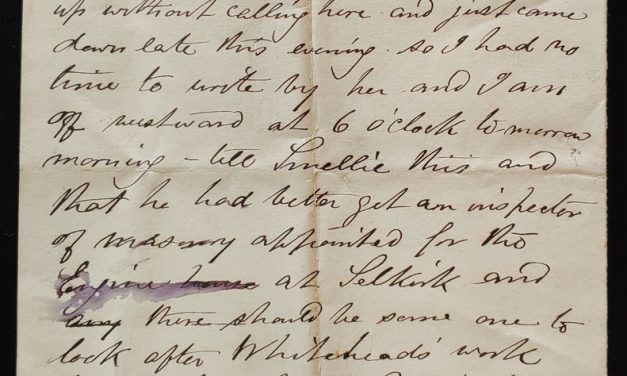 up without calling here and just came
down late this evening. so I had no
time to write by her and I am
off westward at 6 o'clock tomorrow
morning - tell Smellie this and
that he had better get an inspector
of masonry appointed for the
Engine house at Selkirk and
any there should be some one to
look after Whiteheads' work